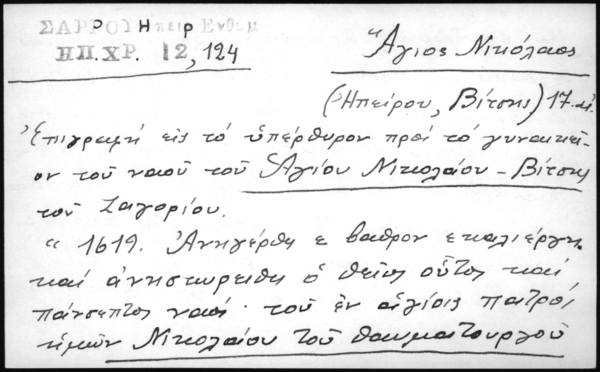 ΣΑΡΡΟΥ Ηπειρ Ενθυμ
ΗΠ.ΧΡ. 12, 124
Ἅγιος Νικόλαος
(Ἠπείρου, Βίτσης) 17 αἰ.
Ἐπιγραφή εἰς τό ὑπέρθυρον πρός τό γυναικεῖ-
ον τοῦ ναοῦ τοῦ Ἁγίου Νικολάου - Βίτσης
τοῦ Ζαγορίου.
"1619. Ἀνηγέρθη ε βαθρον εκαλιέργη.
καί ἀνηστωρειθη ὁ θεῖος οὗτος καί
πάνσεπτος ναός. τοῦ ἐν ἁγίοις πατρός
ἡμῶν Νικολάου τοῦ θαυματουργοῦ